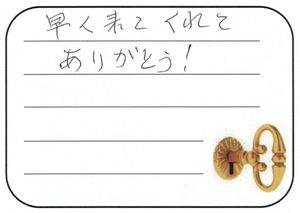 早く来てくれて
ありがとう!